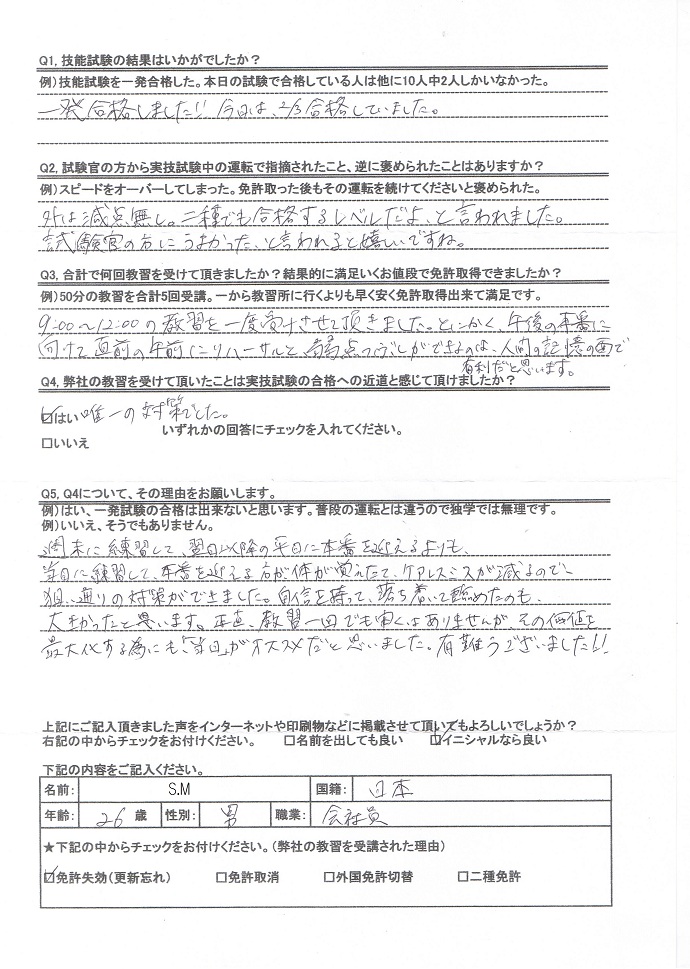 Q1, 技能試験の結果はいかがでしたか？
例）技能試験を一発合格した。本日の試験で合格している人は他に10人中2人しかいなかった。
一発合格しました!! 今日は、2/3合格していました。
Q2, 試験官の方から実技試験中の運転で指摘されたこと、逆に褒められたことはありますか？
例）スピードをオーバーしてしまった。免許取った後もその運転を続けてくださいと褒められた。
外は減点無し。二種でも合格するレベルだよ、と言われました。
試験官の方にうまかった、と言われると嬉しいですね。
Q3, 合計で何回教習を受けて頂きましたか？結果的に満足いくお値段で免許取得できましたか？
例）50分の教習を合計5回受講。一から教習所に行くよりも早く安く免許取得出来て満足です。
9:00〜12:00の教習を一度受けさせて頂きました。とにかく、午後の本番に
向けて直前の午前にリハーサルと、弱点つぶしができるのは、人間の記憶の面で
有利だと思います。
Q4, 弊社の教習を受けて頂いたことは実技試験の合格への近道と感じて頂けましたか？
☑はい 唯一の対策でした。
いずれかの回答にチェックを入れてください。
□いいえ
Q5, Q4について、その理由をお願いします。
例）はい、一発試験の合格は出来ないと思います。普段の運転とは違うので独学では無理です。
例）いいえ、そうでもありません。
週末に練習して、翌日以降の平日に本番を迎えるよりも、
当日に練習して、本番を迎える方が体が覚えたて、ケアレスミスが減るので、
狙い通りの対策ができました。自信を持って、落ち着いて臨めたのも、
大きかったと思います。正直、教習一回でも安くはありませんが、その価値を
最大化する為にも「当日」がオススメだと思いました。有難うございました!!
上記にご記入頂きました声をインターネットや印刷物などに掲載させて頂いてもよろしいでしょうか？
右記の中からチェックをお付けください。 □名前を出しても良い ☑イニシャルなら良い
下記の内容をご記入ください。
名前： S.M 国籍： 日本
年齢： 26 歳 性別： 男 職業： 会社員
★下記の中からチェックをお付けください。（弊社の教習を受講された理由）
☑免許失効（更新忘れ） □免許取消 □外国免許切替 □二種免許